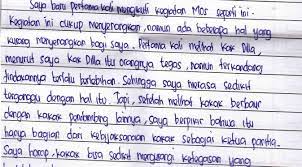 Saya baru pertama kali mengikuti kegiatan Mos seperti ini.
Kegiatan ini cukup menyenangkan, namun ada beberapa hal yang
kurang menyenangkan bagi saya. Pertama kali melihat kak Dilla,
menurut saya kak Dilla itu orangnya tegas, namun terkandang
tindakannya terlalu berlebihan. Sehingga saya merasa sedikit
terganggu dengan hal itu. Tapi, setelah melihat kakak berbaur
dengan kakak pendamping lainnya, saya berpikir bahwa itu
hanya bagian dari kebijaksanaan kakak sebagai ketua panitia.
Saya harap, kakak bisa sedikit mengurangi ketegasan yang